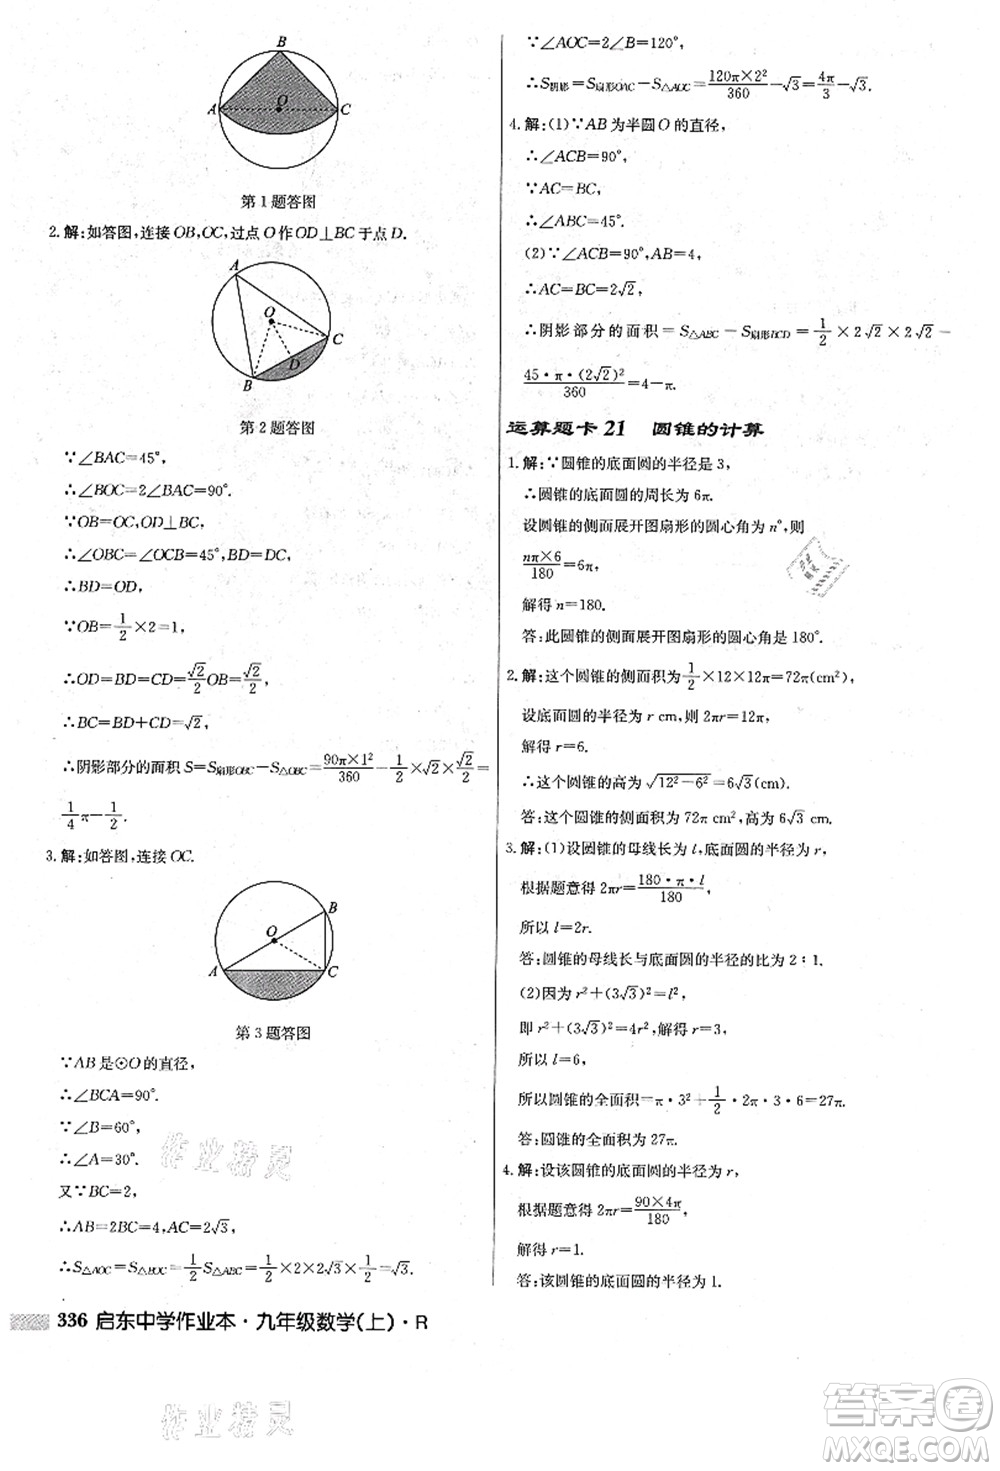 B
A
O
C
第1题答图
2.解:如答图,连接OB,OC,过点O作OD⊥BC于点D.
A
O
C
D
B
第2题答图
∵∠BAC=45°,
∴∠BOC=2∠BAC=90°.
∵OB=OC,OD⊥BC,
∴∠OBC=∠OCB=45°,BD=DC,
∴BD=OD,
∵OB=1/2×2=1,
∴OD=BD=√2/2OB=√2/2,
∴BC=BD+CD=√2,
∴阴影部分的面积S=S扇形OBC-S△OBC=90π×1²/360-1/2×√2×√2/2=
1/4π-1/2.
3.解:如答图,连接OC.
B
O
A
C
第3题答图
∵AB是⊙O的直径,
∴∠BCA=90°.
∵∠B=60°,
∴∠A=30°.
又∵BC=2,
∴AB=2BC=4,AC=2√3,
∴S△AOC=S△BOC=1/2S△ABC=1/2×1/2×2×2√3=√3.
∵∠AOC=2∠B=120°,
∴S阴影=S扇形OAC-S△AOC=120π×2²/360-√3=4π/3-√3.
4.解:(1)∵AB为半圆O的直径,
∴∠ACB=90°,
∵AC=BC,
∴∠ABC=45°.
(2)∵∠ACB=90°,AB=4,
∴AC=BC=2√2,
∴阴影部分的面积=S△ABC-S扇形BCD=1/2×2√2×2√2-
45·π·(2√2)²/360=4-π.
运算题卡21 圆锥的计算
1.解:∵圆锥的底面圆的半径是3,
∴圆锥的底面圆的周长为6π.
设圆锥的侧面展开图扇形的圆心角为n°,则
nπ×6/180=6π,
解得n=180.
答:此圆锥的侧面展开图扇形的圆心角是180°.
2.解:这个圆锥的侧面积=1/2×12×12π=72π(cm²),
设底面圆的半径为r cm,则2πr=12π,
解得r=6.
∴这个圆锥的高为√(12²-6²)=6√3(cm).
答:这个圆锥的侧面积为72π cm²,高为6√3 cm.
3.解:(1)设圆锥的母线长为l,底面圆的半径为r,
根据题意得2πr=180·π·l/180,
所以l=2r.
答:圆锥的母线长与底面圆的半径的比为2∶1.
(2)因为r²+(3√3)²=l²,
即r²+(3√3)²=4r²,解得r=3,
所以l=6,
所以圆锥的全面积=π·3²+1/2·2π·3·6=27π.
答:圆锥的全面积为27π.
4.解:设该圆锥的底面圆的半径为r,
根据题意得2πr=90×4π/180,
解得r=1.
答:该圆锥的底面圆的半径为1.
336 启东中学作业本·九年级数学(上)·R
作业精灵
作业精灵
答案卷
MXQE.COM